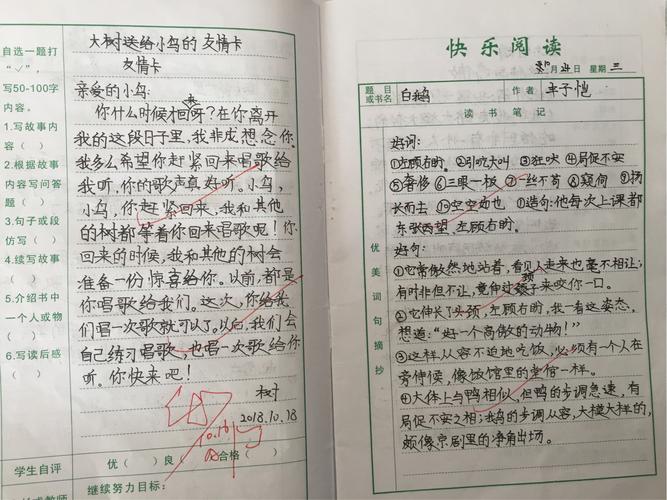 自选一题打
“✓”,
写50-100字
内容。
1.写故事内
容（ ）
2.根据故事
内容写问答
题（ ）
3.句子或段
仿写（ ）
4.续写故事
（ ）
5.介绍书中
一个人或物
（ ）
6.写读后感
（ ）
大树送给小鸟的友情卡
友情卡
亲爱的小鸟:
你什么时候才回呀？在你离开
我的这段日子里,我非常想念你。
我多么希望你赶紧回来唱歌给
我听,你的歌声真好听。小鸟,
小鸟,你赶紧回来,我和其他
的树都等着你回来唱歌呢！你
回来的时候,我和其他的树会
准备一份惊喜给你。以前,都是
你唱歌给我们。这次,你给我
们唱一次歌就可以了。以后,我们会
自己练习唱歌、也唱一次歌给你
听。你快来吧！
树
2018.10.18
10.19
学生自评 优（ ）良（ ）合格（ ）
继续努力目标:
快乐阅读
月24日 星期三
题目
或书名
白鹅
作者
丰子恺
读书笔记
优美词句摘抄
好词:
①左顾右盼。②引吭大叫 ③狂吠 ④局促不安
⑤奢侈 ⑥三眼一板 ⑦一丝不苟 ⑧窥伺 ⑨扬
长而去 ⑩空空如也 ①造句:他每次上课都
东张西望,左顾右盼。
好句:
①它常傲然地站着,看见人走来也毫不相让;
有时非但不让,竟伸过颈子来咬你一口。
②它伸长了头颈,左顾右盼,我一看这姿态,
想道:“好一个高傲的动物！”
③这样从容不迫地吃饭,必须有一个人在
旁伺候,像饭馆里的堂倌一样。
④大体上与鸭相似,但鸭的步调急速,有
局促不安之相;鹅的步调从容,大模大样的,
颇像京剧里的净角出场。